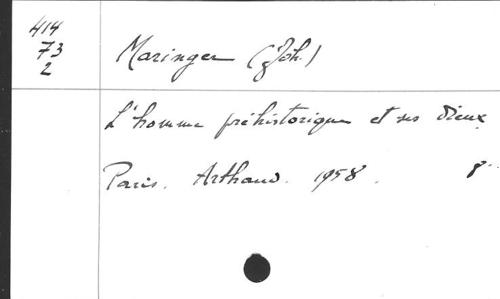 414
73
2
Maringer (Joh.)
L'homme préhistorique et ses dieux
Paris. Arthaud. 1958. 8°